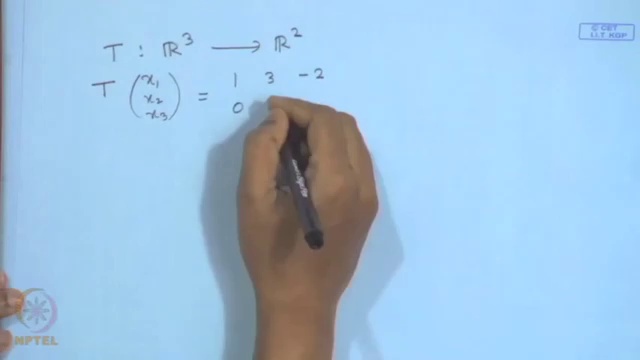 © CET
I.I.T. KGP
T : ℝ³ ⟶ ℝ²
T (x₁ x₂ x₃) = 1 3 -2
0
NPTEL